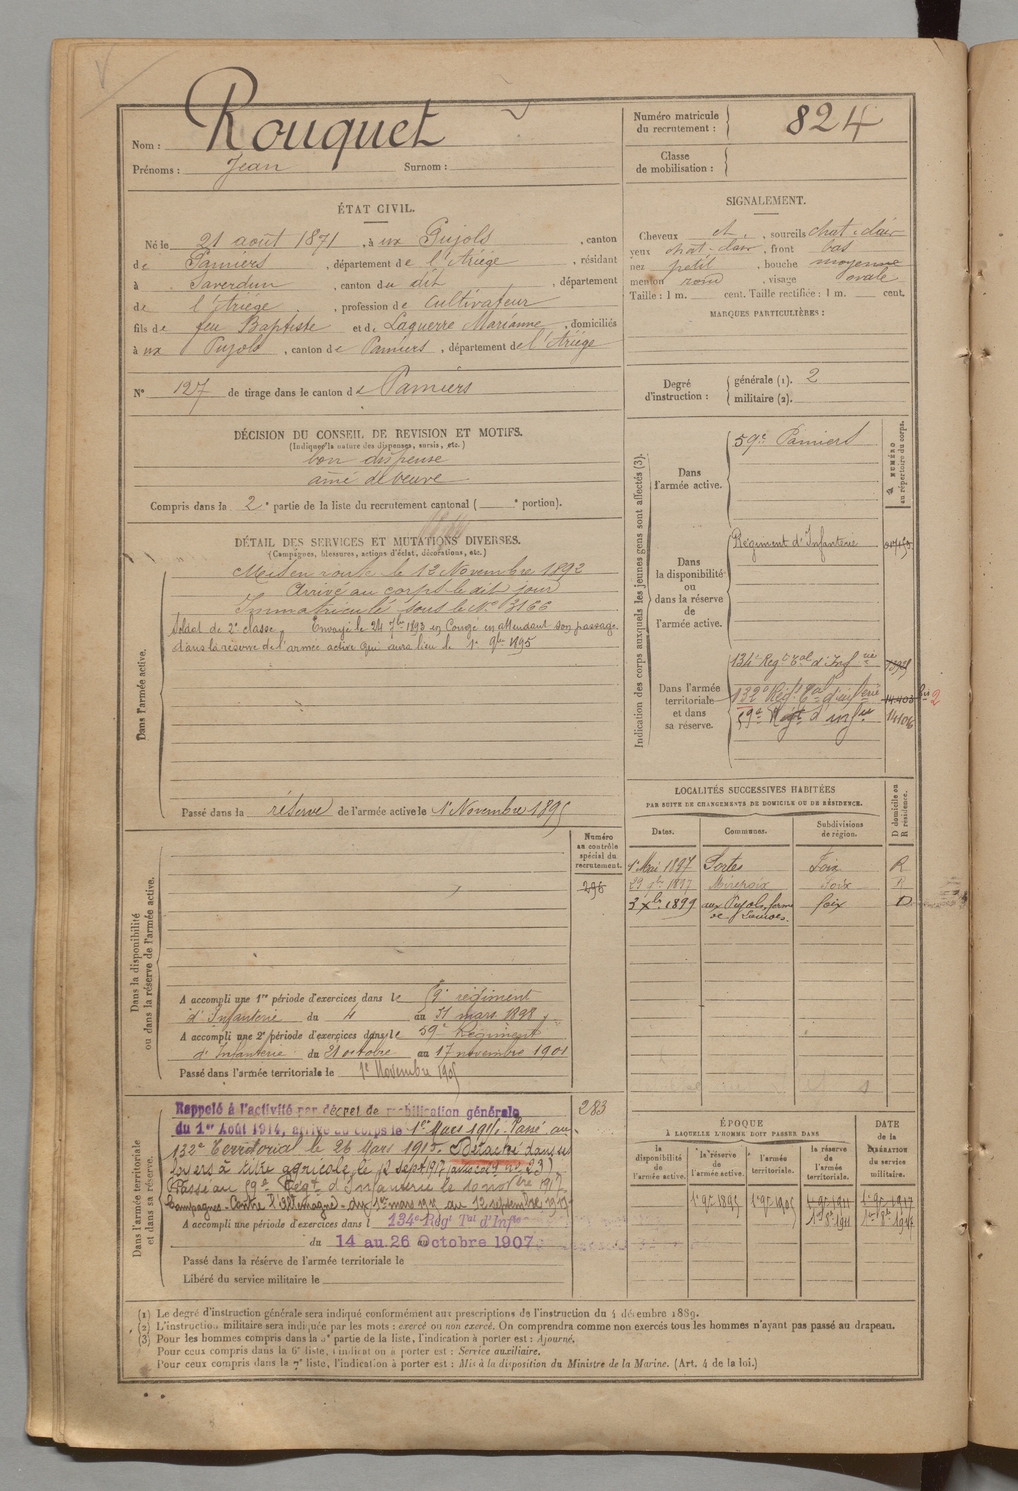 Nom : Rouquet
Prénoms : Jean Surnom :
Numéro matricule du recrutement : 824
Classe de mobilisation :
ÉTAT CIVIL.
Né le 21 août 1871, à ux Pujols, canton
de Pamiers, département de l'Ariège, résidant
à Saverdun, canton du dit, département
de l'Ariège, profession de Cultivateur
fils de feu Baptiste et de Laguerre Marianne, domiciliés
à ux Pujols, canton de Pamiers, département de l'Ariège
N° 127 de tirage dans le canton de Pamiers
SIGNALEMENT.
Cheveux et, sourcils chat. clair
yeux chat-clair, front bas
nez petit, bouche moyenne
menton rond, visage ovale
Taille : 1 m. cent. Taille rectifiée : 1 m. cent.
MARQUES PARTICULIÈRES :
Degré d'instruction : générale (1). 2
militaire (2).
DÉCISION DU CONSEIL DE REVISION ET MOTIFS.
(Indiquer la nature des dispenses, sursis, etc.)
bon dispense
ainé de veuve
Compris dans la 2e partie de la liste du recrutement cantonal ( e portion).
DÉTAIL DES SERVICES ET MUTATIONS DIVERSES.
(Campagnes, blessures, actions d'éclat, décorations, etc.)
Dans l'armée active.
Mis en route le 12 Novembre 1892
Arrivé au corps le dit jour
Immatriculé sous le No 3166
Soldat de 2e classe, Envoyé le 24 7bre 1893 en Congé en attendant son passage
dans la réserve de l'armée active qui aura lieu le 1er 9bre 1895
Passé dans la réserve de l'armée active le 1er Novembre 1895
Indication des corps auxquels les jeunes gens sont affectés (3).
NUMÉRO au répertoire du corps.
Dans l'armée active.
59e Pamiers
Dans la disponibilité ou dans la réserve de l'armée active.
Régiment d'Infanterie
Dans l'armée territoriale et dans sa réserve.
134e Regt Tal d'Infrie
132e Régt Tal d'infrie 14403 bis 2
59e Regt d'infie 14106
LOCALITÉS SUCCESSIVES HABITÉES
PAR SUITE DE CHANGEMENTS DE DOMICILE OU DE RÉSIDENCE.
Dates. Communes. Subdivisions de région. D domicile ou R résidence.
1er Mai 1897 Foix R
29 9bre 1897 Mirepoix Foix R
3 Xbre 1899 aux Pujols, ferme foix D
Dans la disponibilité ou dans la réserve de l'armée active.
Numéro au contrôle spécial du recrutement.
296
A accompli une 1re période d'exercices dans le régiment
d'Infanterie du 4 au 31 mars 1898
A accompli une 2e période d'exercices dans le 59e Régiment
d'Infanterie du 21 octobre au 17 novembre 1901
Passé dans l'armée territoriale le 1er Novembre 1905
Dans l'armée territoriale et dans sa réserve.
283
Rappelé à l'activité par décret de mobilisation générale
du 1er Août 1914, arrivé au corps le 1er Mars 1915. Passé au
132e Territorial le 26 Mars 1915. Détaché dans ses
foyers à titre agricole, le 12 sept 1917
Passé au 59e Regt d'Infanterie le 10 novbre 1917
Campagnes - Contre l'Allemagne - du 1er mars 1915 au 12 septembre 1917
A accompli une période d'exercices dans l 134e Régt Tal d'Infie
du 14 au 26 Octobre 1907
Passé dans la réserve de l'armée territoriale le
Libéré du service militaire le
ÉPOQUE
À LAQUELLE L'HOMME DOIT PASSER DANS
la disponibilité de l'armée active. la réserve de l'armée active. l'armée territoriale. la réserve de l'armée territoriale.
DATE de la LIBÉRATION du service militaire.
1er 9bre 1895 1er 9bre 1905 1er 9bre 1911 1er 9bre 1917
1er 8bre 1911 1er 8bre 1917
(1) Le degré d'instruction générale sera indiqué conformément aux prescriptions de l'instruction du 4 décembre 1889.
(2) L'instruction militaire sera indiquée par les mots : exercé ou non exercé. On comprendra comme non exercés tous les hommes n'ayant pas passé au drapeau.
(3) Pour les hommes compris dans la 5e partie de la liste, l'indication à porter est : Ajourné.
Pour ceux compris dans la 6e liste, l'indication à porter est : Service auxiliaire.
Pour ceux compris dans la 7e liste, l'indication à porter est : Mis à la disposition du Ministre de la Marine. (Art. 4 de la loi.)